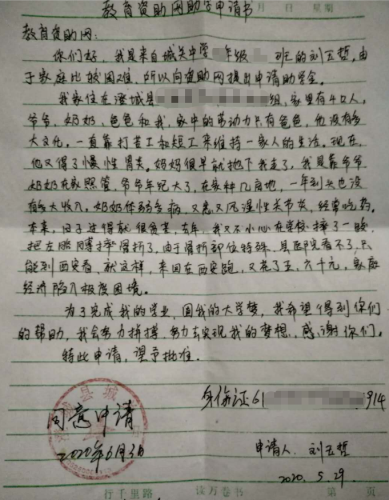 教育资助网助学申请书
月 日 星期
教育资助网：
你们好，我是来自城关中学 年级 班的刘五哲，由
于家庭比较困难，所以向资助网提出申请助学金。
我家住在澄城县 组，家里有4口人，
爷爷、奶奶、爸爸和我，家中的劳动力只有爸爸，他没有多
大文化，一直靠打工和短工来维持一家人的生活，现在，
他又得了慢性胃炎。妈妈很早就抛下我走了，我是靠爷爷
奶奶在家照管，爷爷年纪大了，在家种几亩地，一年到头也没
有多大收入，奶奶体弱多病，又患又风湿性关节炎，经常吃药。
本来，日子过得就很艰苦，去年，我又不小心在学校摔了一跤，
把左胳膊摔骨折了，由于骨折部位特殊，县医院看不了，只
能到西安看，就这样，来回在西安跑，又花了五、六千元，家庭
经济陷入极度困境。
为了完成我的学业，圆我的大学梦，我希望得到你们
的帮助，我会努力拼搏，努力去实现我的梦想，感谢你们。
特此申请，望予批准。
身份证61 914
同意申请
2020年6月3日
申请人：刘五哲
2020.5.29
行万里路 读万卷书 第 页